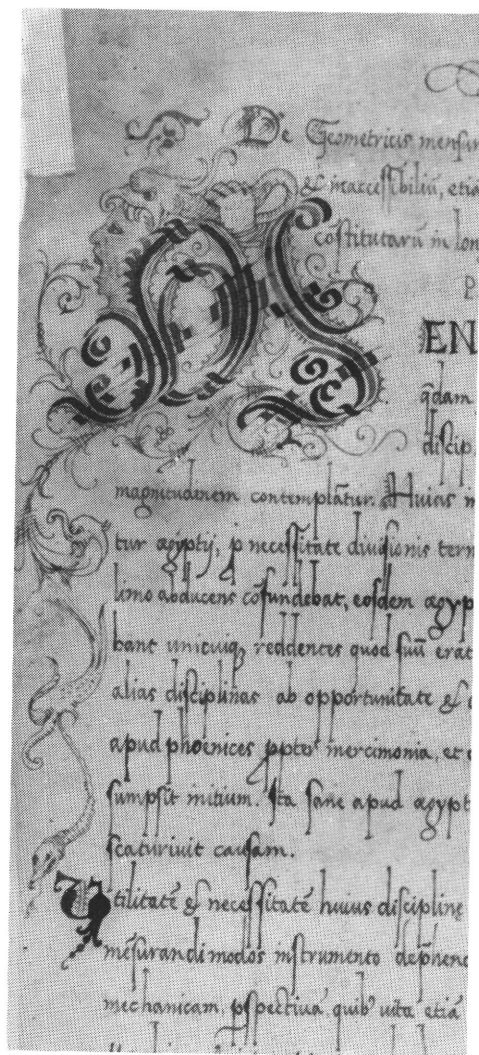 De Geometricis mensur
& inaccessibiliũ, etia
cõstitutarũ in lon
P
MEN
q̃dam
discip.
magnitudinem contemplãtur. Huius in
tur ægyptij, p necessitate diuisionis term
limo abducens cõfundebat, eosdem ægyp
bant unicuiq; reddentes quod suũ erat
alias disciplinas ab opportunitate &
apud phoenices ppter mercimonia, et
sumpsit initium. Ita sane apud ægypt
scaturiuit causam.
Vtilitatẽ & necessitatẽ huius discipline
mẽsurandi modos instrumento depñend
mechanicam, pspectiua quib' uita etiã